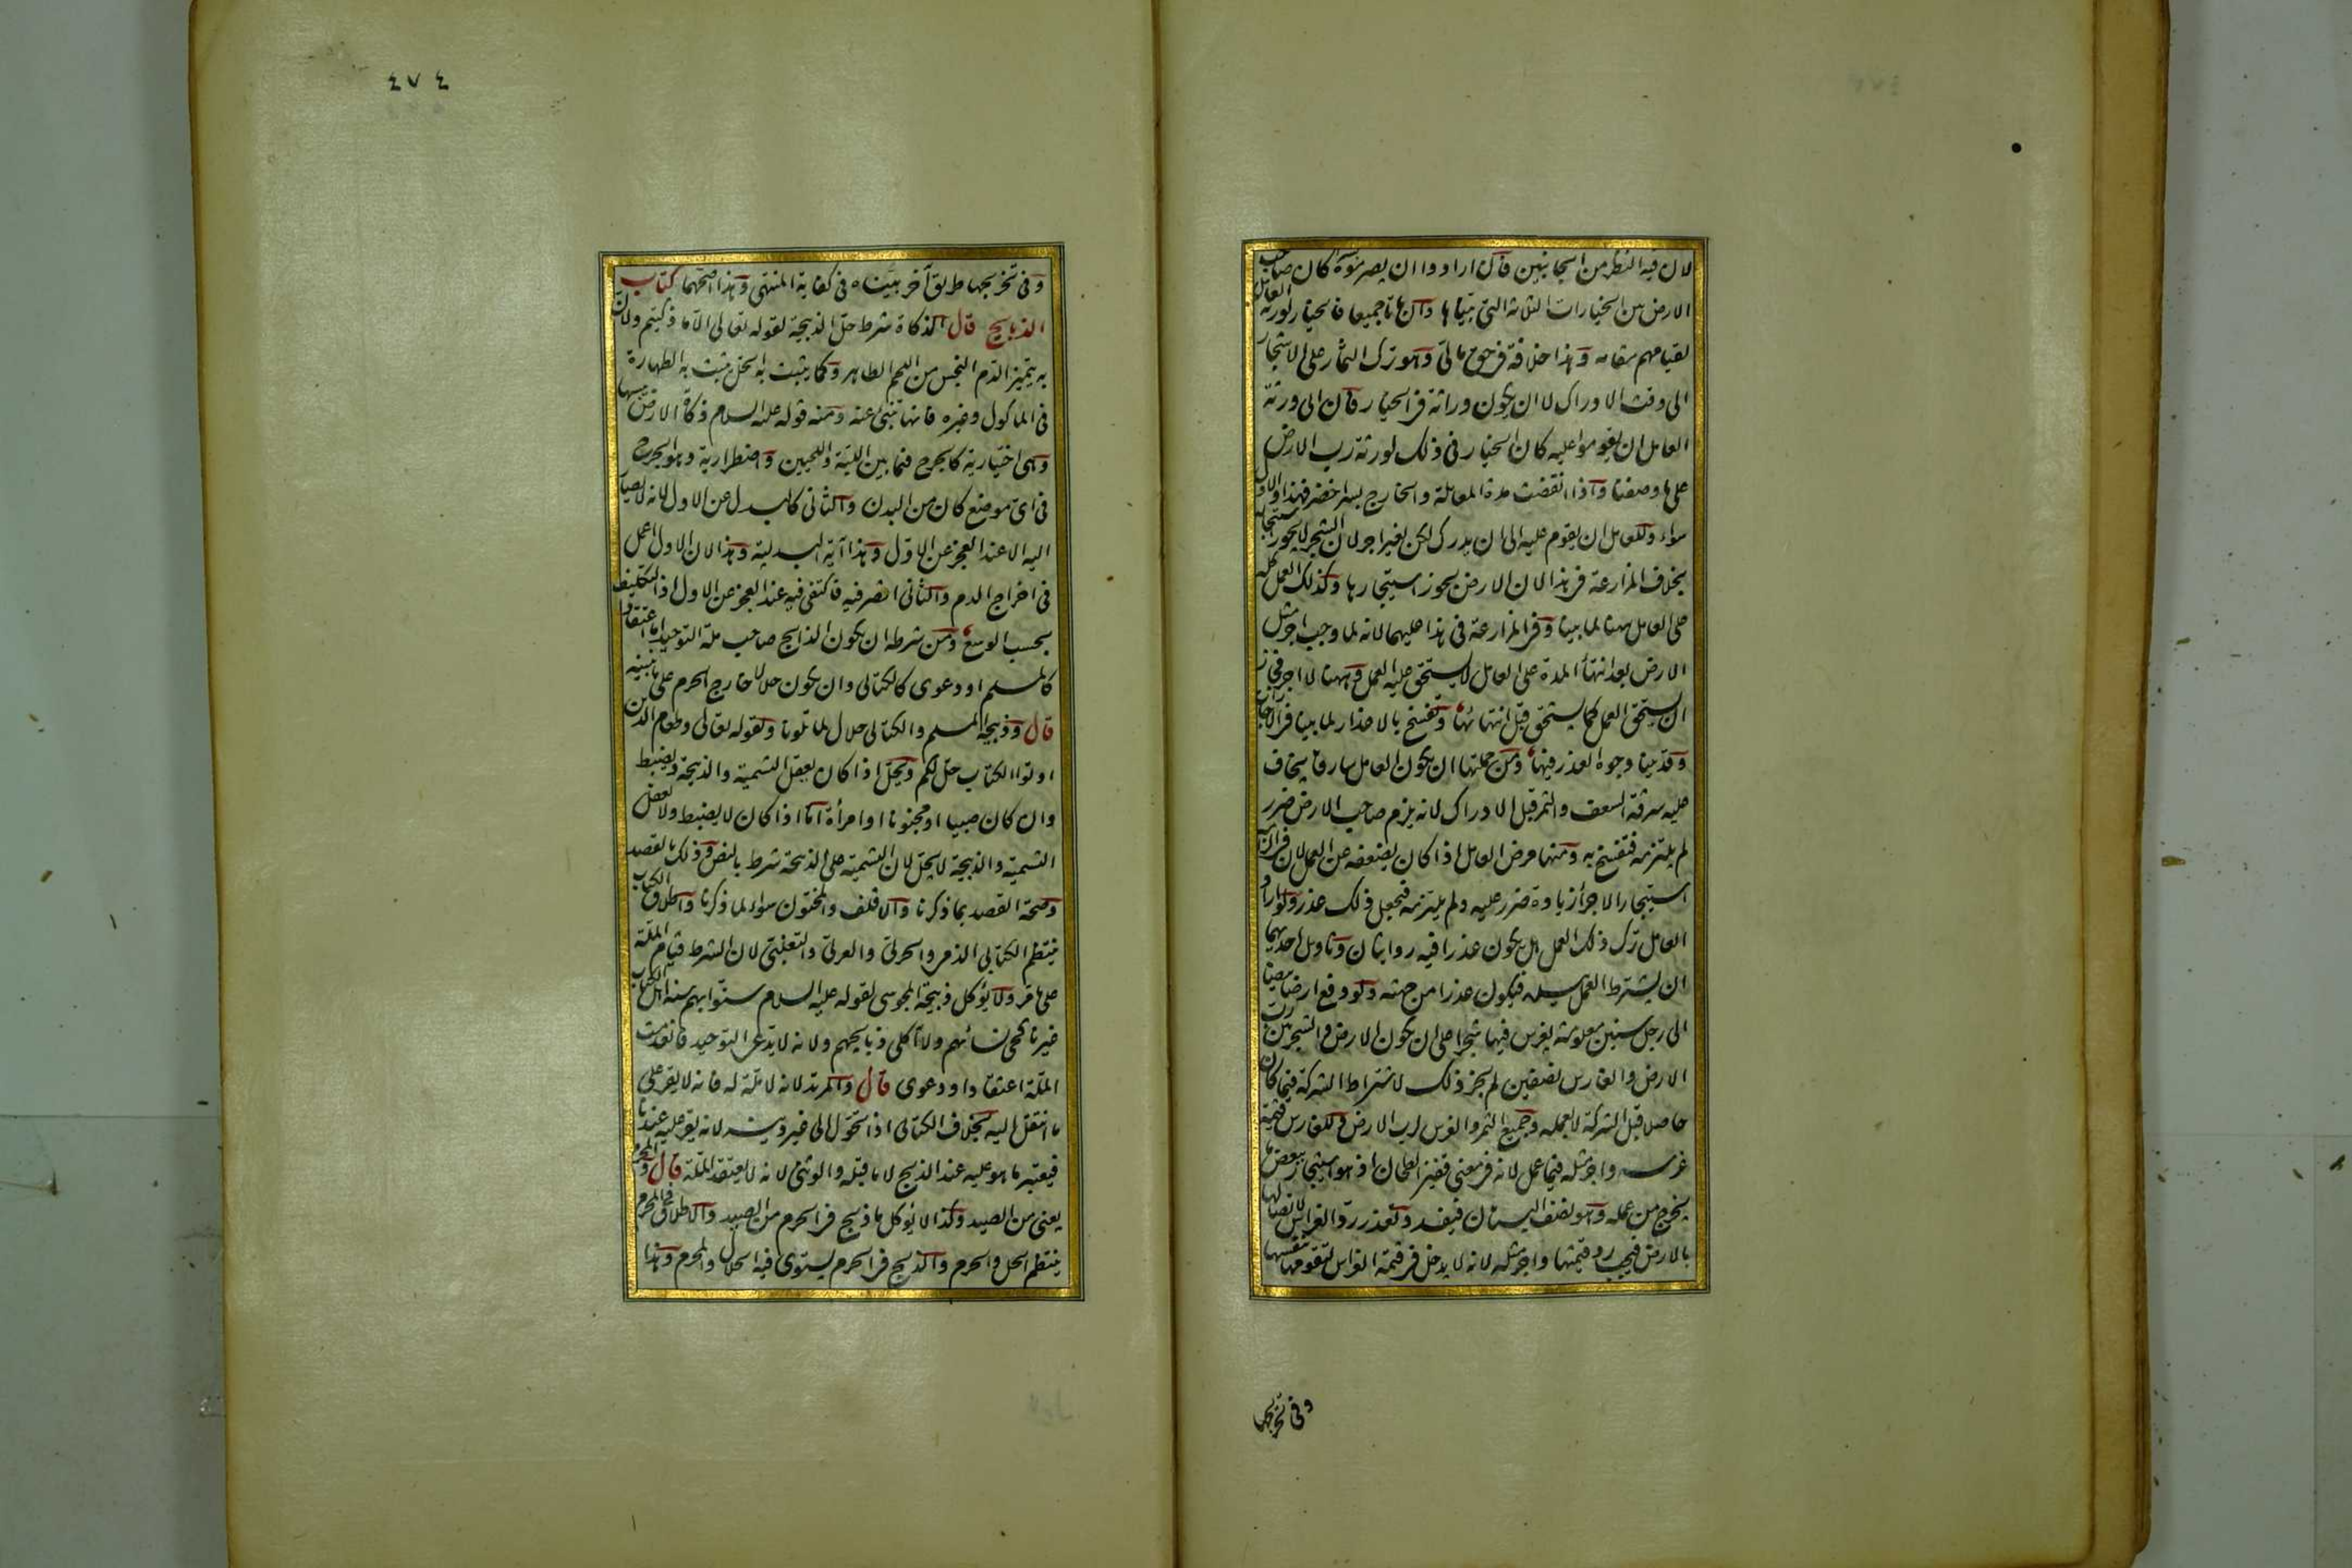 لان فيه النظر من الجانبين فان ارادوا ان يصرموه بسرا كان صاحب
الارض بين الخيارات الثلاثة التى بيناها وان ماتا جميعا فالخيار لورثة العامل
لقيامهم مقامه وهذا خلافة فى حق مالى وهو ترك الثمار على الاشجار
الى وقت الادراك لا ان يكون وراثة فى الخيار فان ابى ورثة
العامل ان يقوموا عليه كان الخيار فى ذلك لورثة رب الارض
على ما وصفنا واذا انقضت مدة المعاملة والخارج بسر اخضر فهذا والاول
سواء وللعامل ان يقوم عليه الى ان يدرك لكن بغير اجر لان الشجر لا يجوز استيجاره
بخلاف المزارعة فى هذا لان الارض يجوز استيجارها وكذلك العمل كله
على العامل ههنا لما بينا وفى المزارعة فى هذا عليهما لانه لما وجب اجر مثل
الارض بعد انتهاء المدة على العامل لا يستحق عليه العمل وههنا لا اجر فجاز
ان يستحق العمل كما يستحق قبل انتهائها وتفسخ بالاعذار لما بينا فى الاجارات
وقد بينا وجوه العذر فيها ومن جملتها ان يكون العامل سارقا يخاف
عليه سرقة السعف والثمر قبل الادراك لانه يلزم صاحب الارض ضرر
لم يلتزمه فتفسخ به ومنها مرض العامل اذا كان يضعفه عن العمل لان فى الزامه
استيجار الاجراء زيادة ضرر عليه ولم يلتزمه فيجعل ذلك عذر ولو اراد
العامل ترك ذلك العمل هل يكون عذرا فيه روايتان وتاويل احديهما
ان يشترط العمل بيده فيكون عذرا من جهته ولو دفع ارضا بيضا
الى رجل سنين معلومة يغرس فيها شجرا على ان يكون الارض والشجر بين رب
الارض والغارس نصفين لم يجز ذلك لاشتراط الشركة فيما كان
حاصلا قبل الشركة لا بعمله وجميع الثمر والغرس لرب الارض وللغارس قيمة
غرسه واجر مثله فيما عمل لانه فى معنى قفيز الطحان اذ هو استيجار ببعض ما
يخرج من عمله وهو نصف البستان فيفسد وتعذر رد الغراس لاتصالها
بالارض فيجب رد قيمتها واجر مثله لانه لا يدخل فى قيمة الغراس لتقومها بنفسها
وفى تخريجها
٤٧٤
وفى تخريجها طريق آخر بيناه فى كفاية المنتهى وهذا اصحهما كتاب
الذبايح قال الذكاة شرط حل الذبيحة لقوله تعالى الا ما ذكيتم ولان
به يتميز الدم النجس من اللحم الطاهر وكما يثبت به الحل يثبت به الطهارة
فى الماكول وغيره فانها تنبئ عنه ومنه قوله عليه السلام ذكاة الارض يبسها
وهى اختيارية كالجرح فيما بين اللبة واللحيين واضطرارية وهو الجرح
فى اى موضع كان من البدن والثانى كالبدل عن الاول لانه لا يصار
اليه الا عند العجز عن الاول وهذا آية البدلية وهذا لان الاول اعمل
فى اخراج الدم والثانى اقصر فيه فاكتفى فيه عند العجز عن الاول اذ التكليف
بحسب الوسع ومن شرطه ان يكون الذابح صاحب ملة التوحيد اما اعتقادا
كالمسلم او دعوى كالكتابى وان يكون حلالا خارج الحرم على ما نبينه
قال وذبيحة المسلم والكتابى حلال لما تلونا ولقوله تعالى وطعام الذين
اوتوا الكتاب حل لكم ويحل اذا كان يعقل التسمية والذبيحة ويضبط
وان كان صبيا او مجنونا او امرأة اما اذا كان لا يضبط ولا يعقل
التسمية والذبيحة لا يحل لان التسمية على الذبيحة شرط بالنص وذلك بالقصد
وصحة القصد بما ذكرنا والاقلف والمختون سواء لما ذكرنا واطلاق الكتاب
ينتظم الكتابى الذمى والحربى والعربى والتغلبى لان الشرط قيام الملة
على ما مر ولا يؤكل ذبيحة المجوسى لقوله عليه السلام سنوا بهم سنة اهل الكتاب
غير ناكحى نسائهم ولا آكلى ذبايحهم ولانه لا يدعى التوحيد فانعدمت
الملة اعتقادا ودعوى قال والمرتد لانه لا ملة له فانه لا يقر على
ما انتقل اليه بخلاف الكتابى اذا تحول الى غير دينه لانه يقر عليه عندنا
فيعتبر ما هو عليه عند الذبح لا ما قبله والوثنى لانه لا يعتقد الملة قال والمحرم
يعنى من الصيد وكذا لا يؤكل ما ذبح فى الحرم من الصيد والاطلاق فى المحرم
ينتظم الحل والحرم والذبح فى الحرم يستوى فيه الحلال والمحرم وهذا